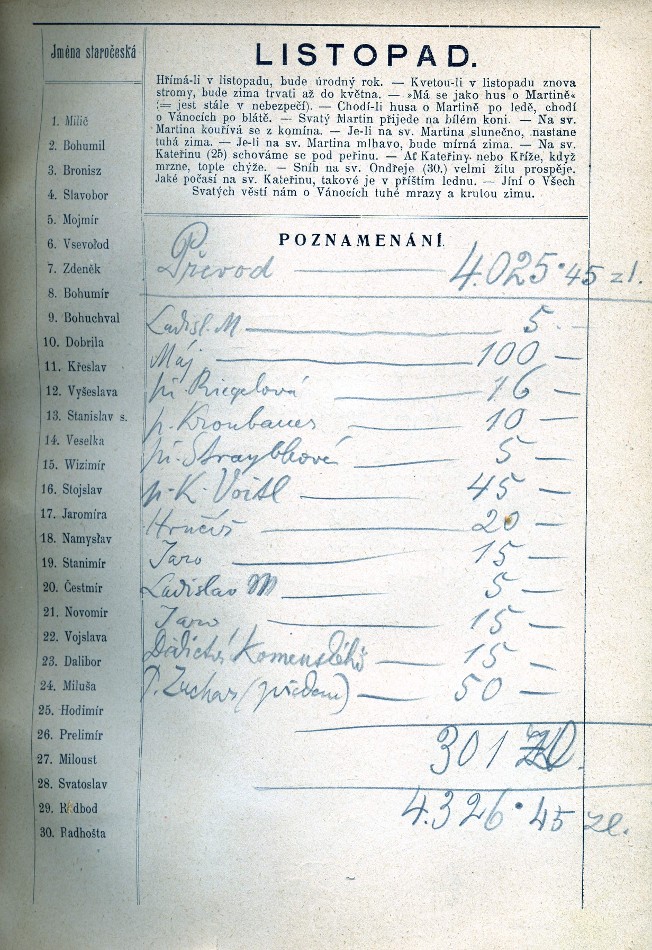 Jména staročeská
1. Milič
2. Bohumil
3. Bronisz
4. Slavobor
5. Mojmír
6. Vsevořod
7. Zdeněk
8. Bohumír
9. Bohuchval
10. Dobrila
11. Křeslav
12. Vyšeslava
13. Stanislav s.
14. Veselka
15. Wizimír
16. Stojslav
17. Jaromíra
18. Namyslav
19. Stanimír
20. Čestmír
21. Novomir
22. Vojslava
23. Dalibor
24. Miluša
25. Hodimír
26. Prelimír
27. Miloust
28. Svatoslav
29. Radbod
30. Radhošta
LISTOPAD.
Hřímá-li v listopadu, bude úrodný rok. — Kvetou-li v listopadu znova
stromy, bude zima trvati až do května. — »Má se jako hus o Martině«
(= jest stále v nebezpečí). — Chodí-li husa o Martině po ledě, chodí
o Vánocích po blátě. — Svatý Martin přijede na bílém koni. — Na sv.
Martina kouřívá se z komína. — Je-li na sv. Martina slunečno, nastane
tuhá zima. — Je-li na sv. Martina mlhavo, bude mírná zima. — Na sv.
Kateřinu (25) schováme se pod peřinu. — Ať Kateřiny nebo Kříže, když
mrzne, tople chýže. — Sníh na sv. Ondřeje (30.) velmi žitu prospěje.
Jaké počasí na sv. Kateřinu, takové je v příštím lednu. — Jíní o Všech
Svatých věstí nám o Vánocích tuhé mrazy a krutou zimu.
POZNAMENÁNÍ.
Převod — 4.025·45 zl.
Ladisl. M — 5 —
Máj — 100 —
pí. Riegelová — 16 —
p. Kronbauer — 10 —
pí. — 5 —
p. K. Voitl — 45 —
Hrnčíř — 20 —
Jaro — 15 —
Ladislav M — 5 —
Jaro — 15 —
Dědictví Komenského — 15 —
(předem) — 50 —
301 Zl.
4.326·45 zl.